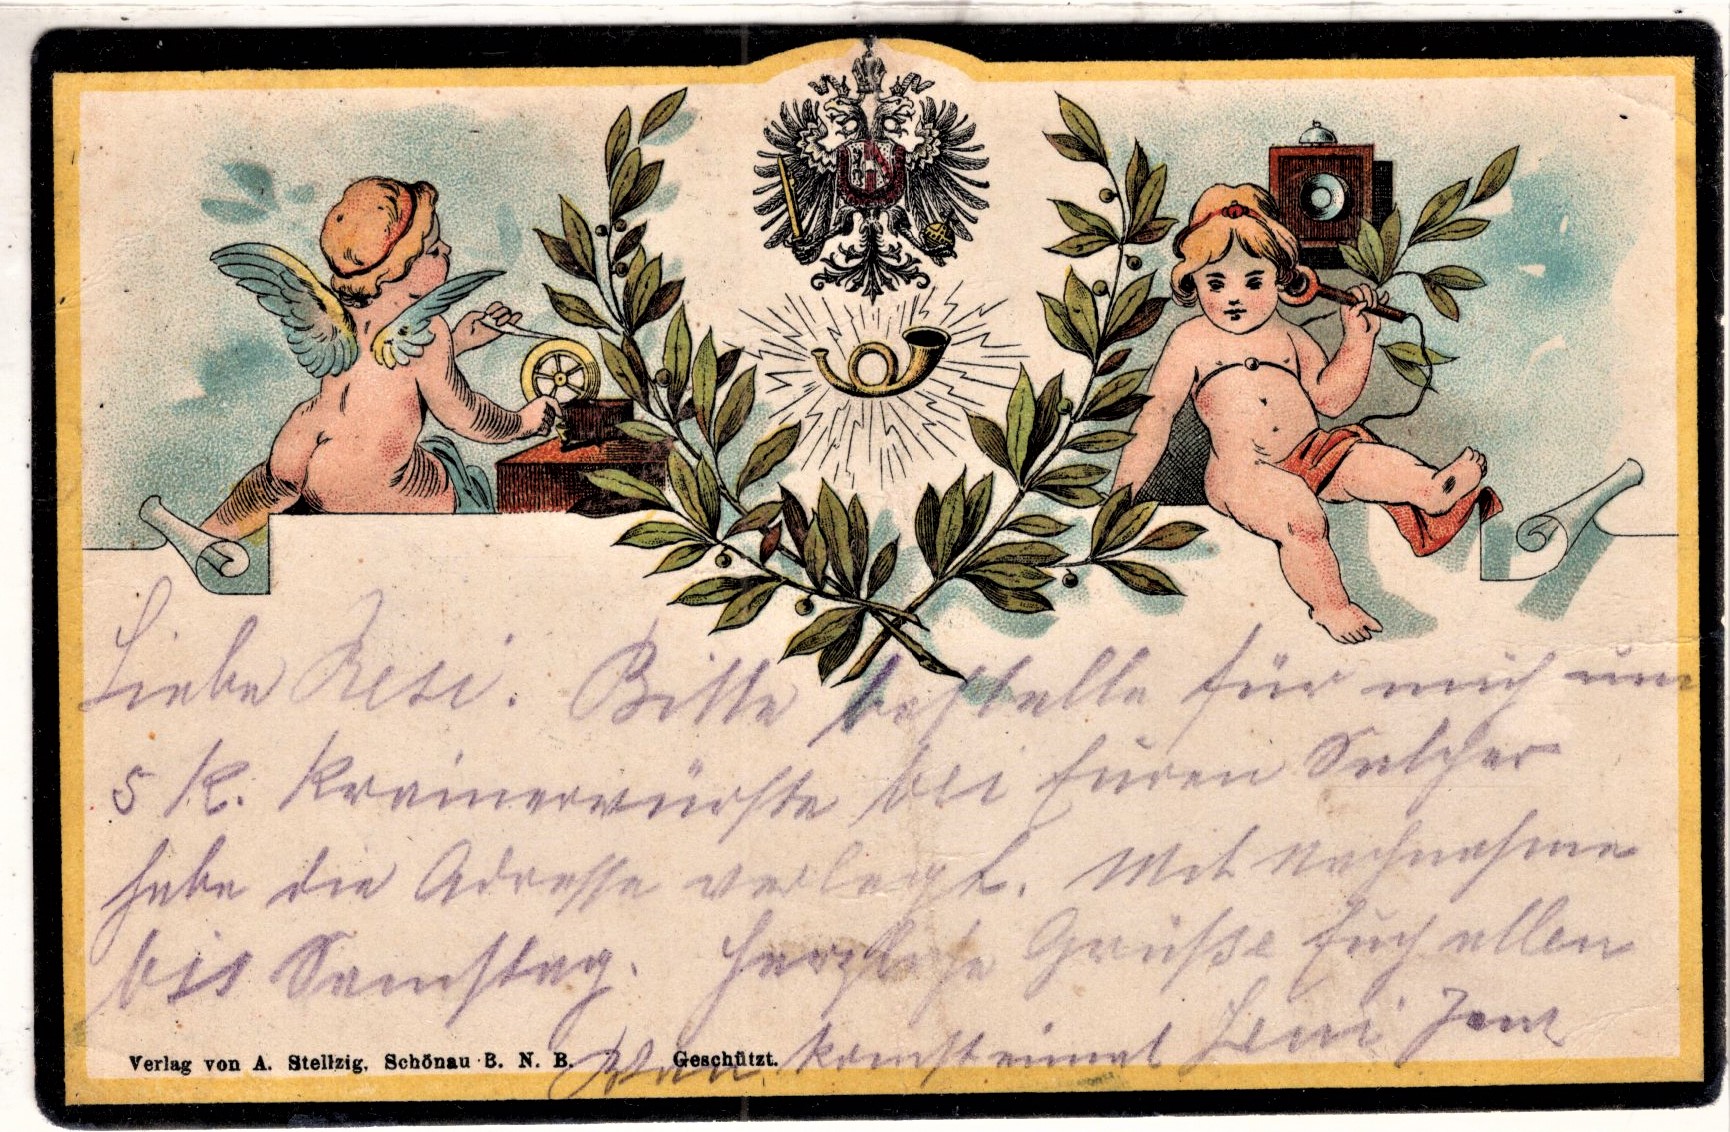 Liebe Resi. Bitte bestelle für mich um
5 K. Krainerwürste bei Euren Selcher
habe die Adresse verlegt. Mit Nachnahme
bis Samstag. Herzliche Grüße Euch allen
Wan komst einmal Leni
Verlag von A. Stellzig, Schönau B. N. B. Geschützt.